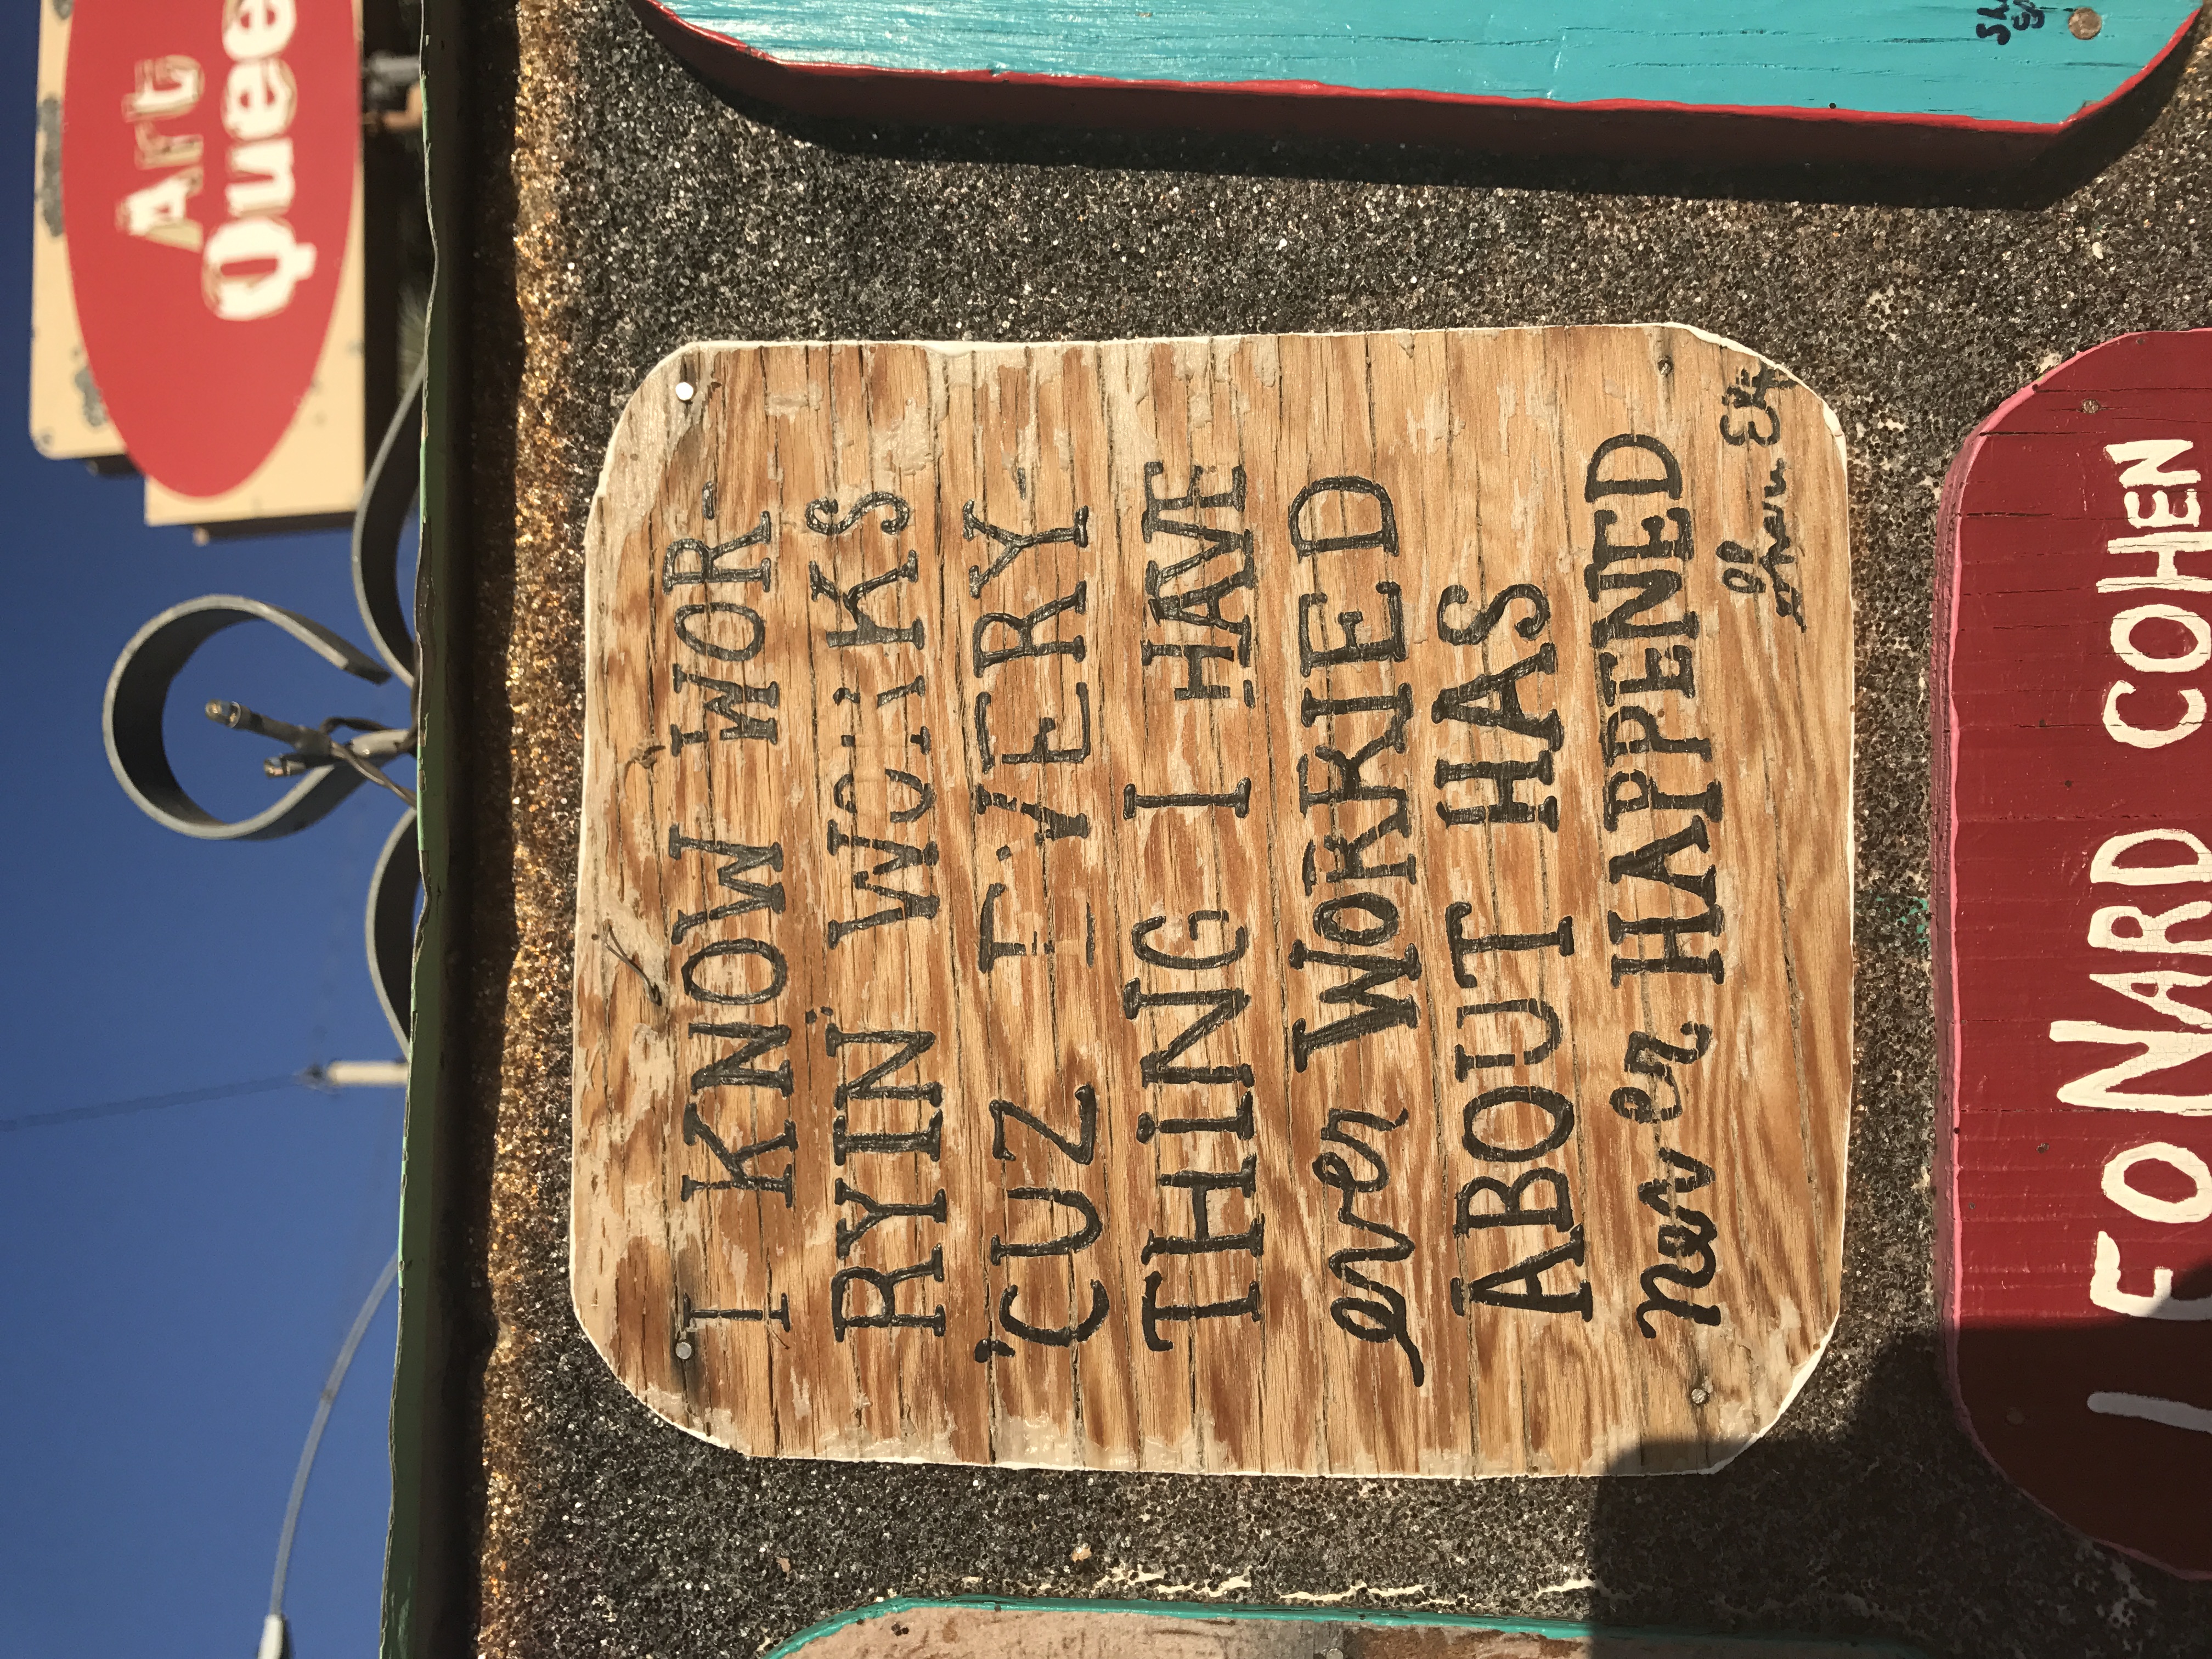 Art
Quee
I KNOW WOR-
RYIN' WORKS
'CUZ EVERY-
THING I HAVE
ever WORRIED
ABOUT HAS
never HAPPENED
LEONARD COHEN